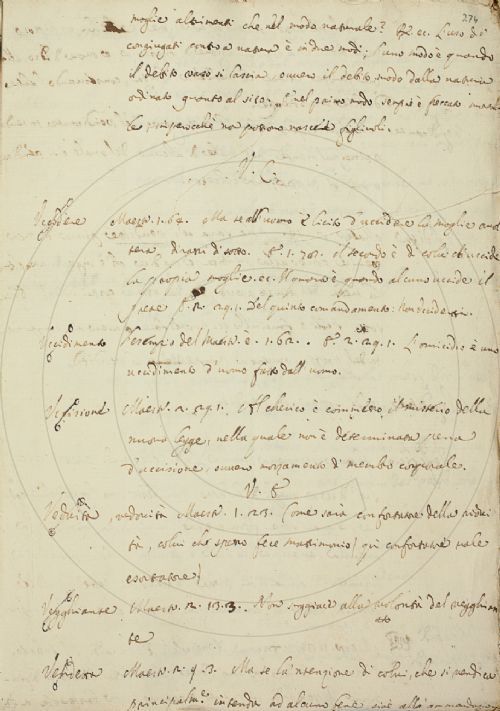 274
moglie altrimenti che nel modo naturale? R. ec. L'uso di
congiugati contro a natura è in due modi; l'uno modo è quando
il debito vaso si lascia, ovvero il debito modo dalla natura
ordinato quanto al sito; e nel primo modo sempre è peccato
perciocchè non possono nascere figliuoli.
V. C.
Uccidere Maestr. 1. 64. Ma se all'uomo è licito d'uccidere la moglie
dirassi di sotto. 1. 70. il secondo è di colui che uccide
la propria moglie. ec. è quando alcuno uccide il
2. 29. 1. Del quinto comandamento: Non
Uccidimento L'esempio del Maestr. è 1. 62. 2. 29. 1. L'omicidio è uno
uccidimento d'uomo fatto dall'uomo.
Uccisione Maestr. 2. 29. 1. Al cherico è commesso il ministerio della
nuova legge, nella quale non è determinata pena
d'uccisione, ovvero mozzamento di membro corporale.
Vedovità, vedovità Maestr. 1. 23. Come saria confortatore della
tà, colui che spesso fece matrimonio / qui confortatore vale
esortatore /
Vegghiante Maestr. 2. 13. 3. Non soggiace alla volontà del vegghian
te
Maestr. 2. 9. 3. Ma se la 'ntenzione di colui, che si vendica
principalm.e intende ad alcuno bene, cioè alla